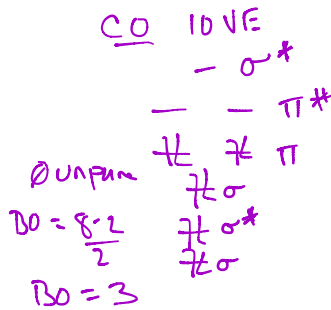 CO 10 VE
— σ*
— — π*
π
Ø unpaire
σ
BO = 8-2 / 2
σ*
σ
BO = 3